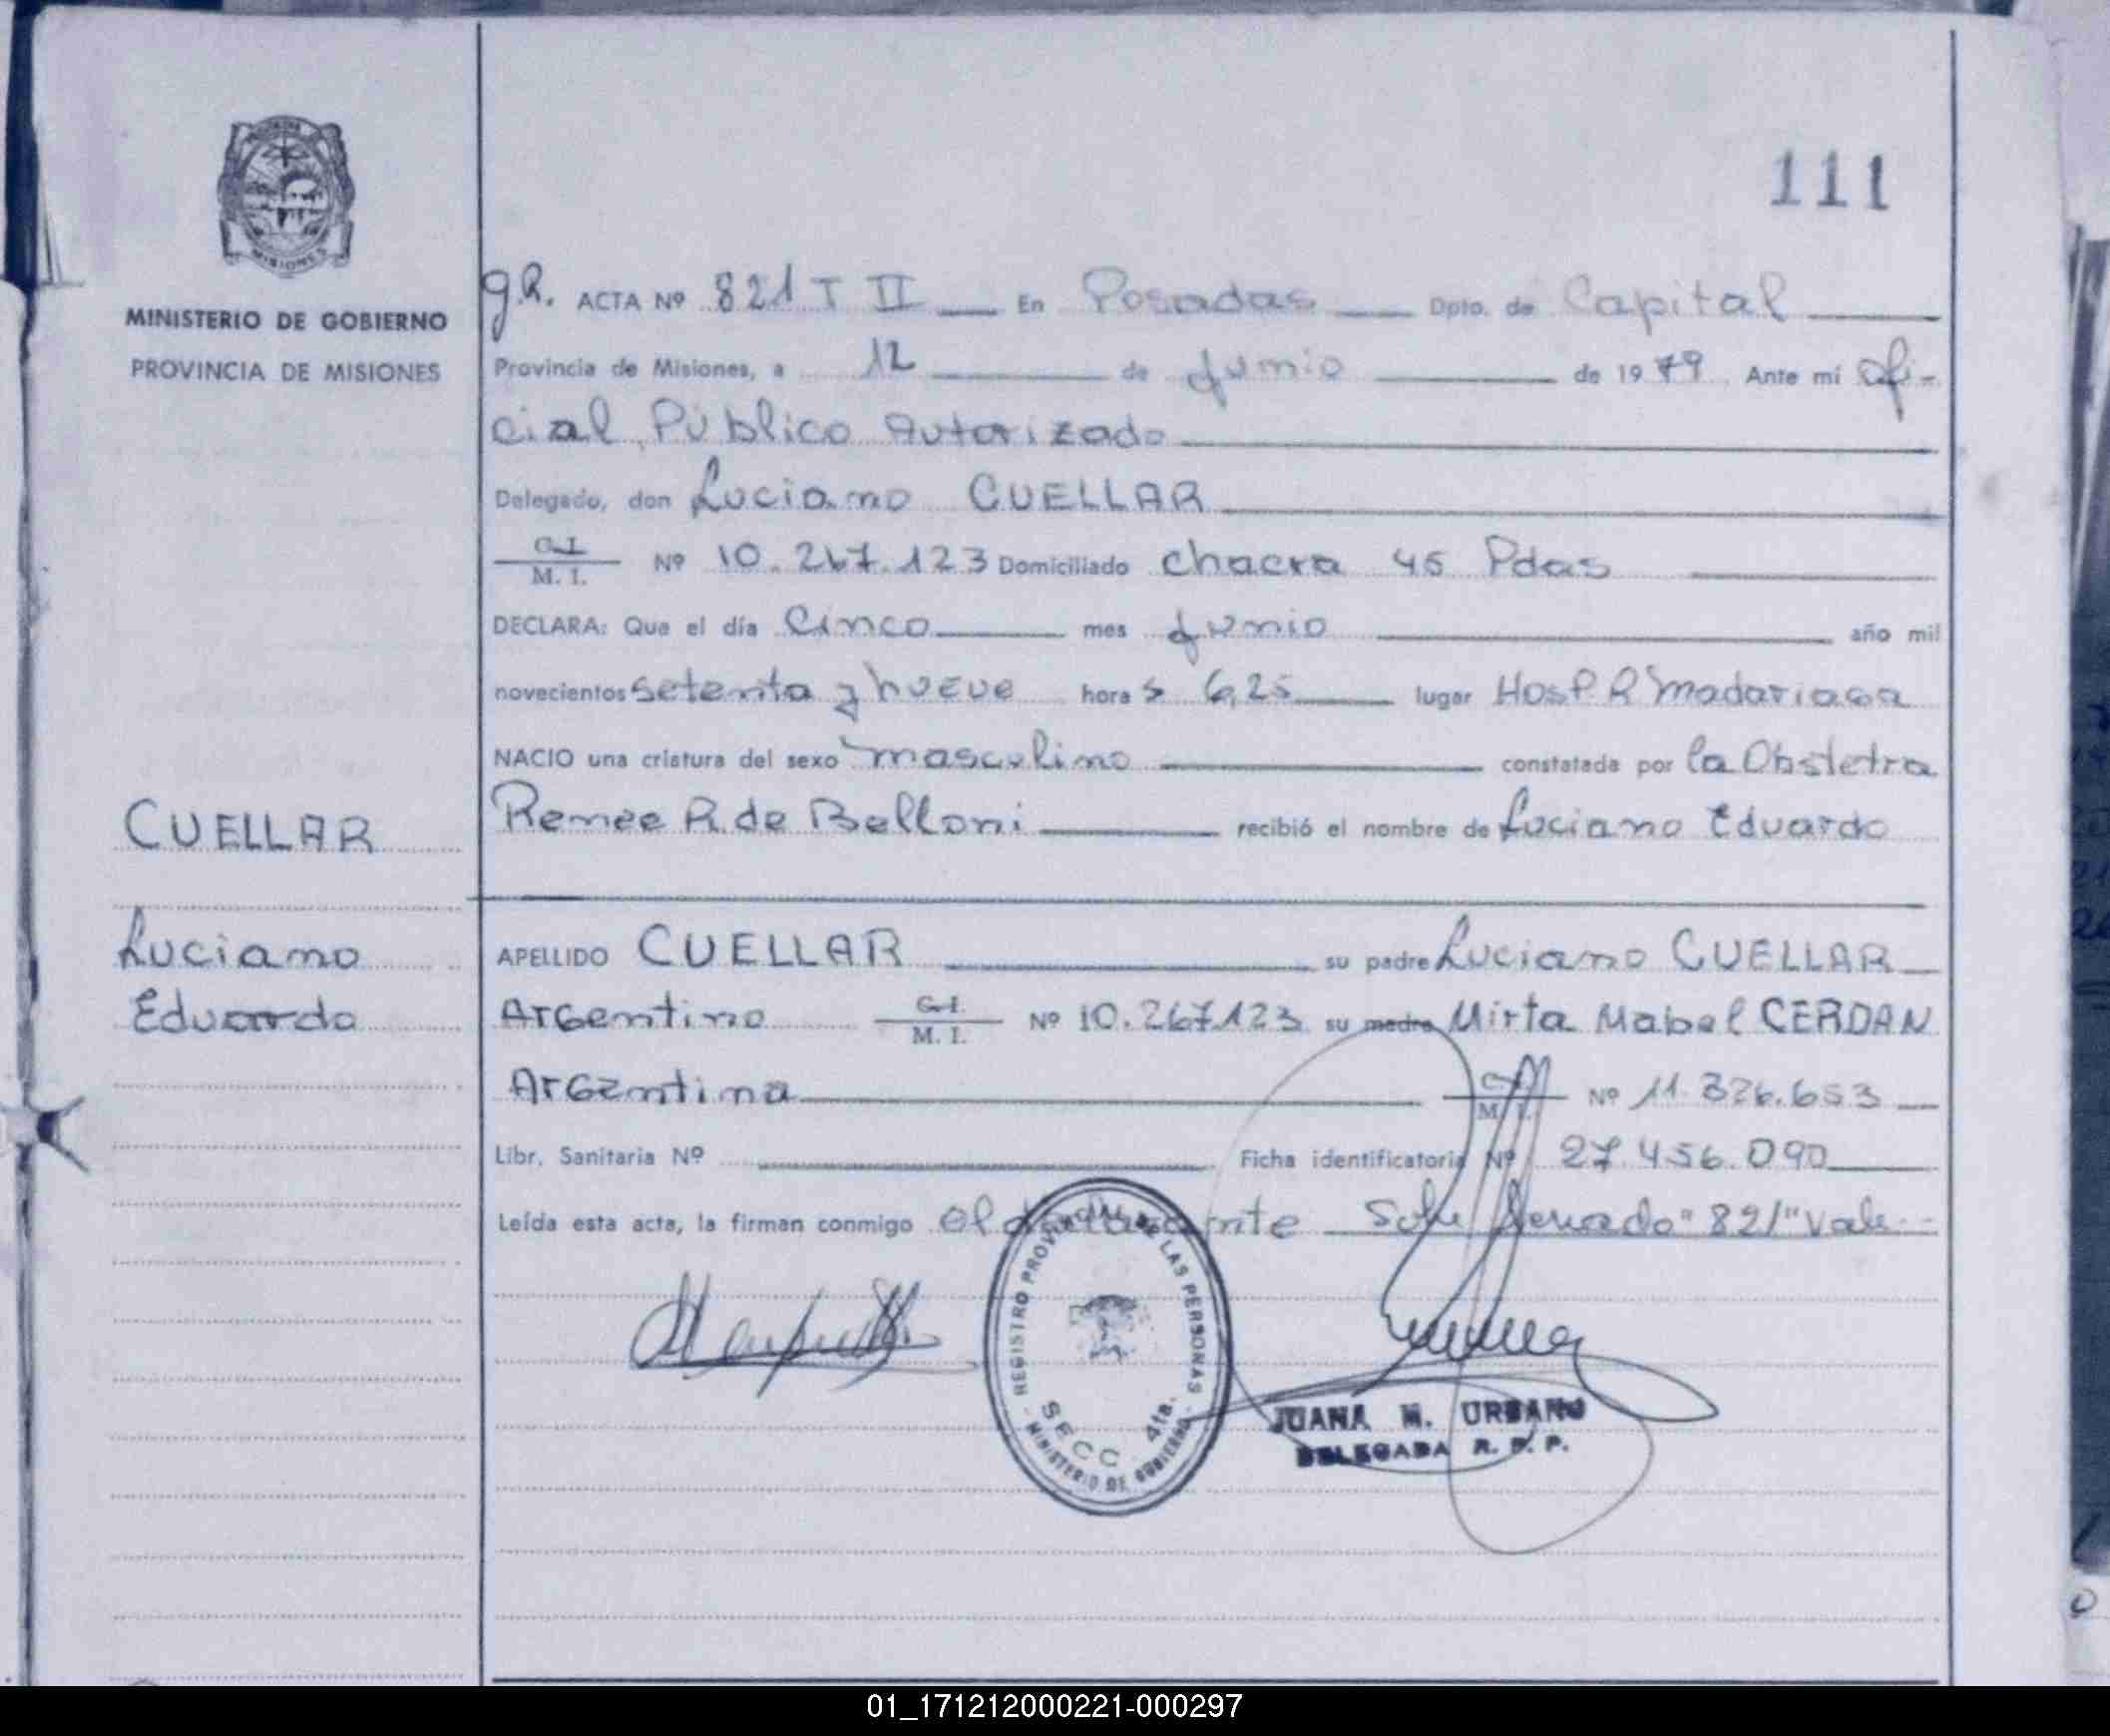 MISIONES
MINISTERIO DE GOBIERNO
PROVINCIA DE MISIONES
CUELLAR
Luciano
Eduardo
111
g.R. ACTA Nº 821 T II En Posadas Dpto. de Capital
Provincia de Misiones, a 12 de Junio de 1979 Ante mí Ofi-
cial Público Autorizado
Delegado, don Luciano CUELLAR
C.I. M. I. Nº 10.267.123 Domiciliado chacra 45 Pdas
DECLARA: Que el día Cinco mes Junio año mil
novecientos setenta y nueve hora s 6,25 lugar Hosp. R Madariaga
NACIO una criatura del sexo masculino constatada por la Obstetra
Renee R. de Belloni recibió el nombre de Luciano Eduardo
APELLIDO CUELLAR su padre Luciano CUELLAR
Argentino C.I. M. I. Nº 10.267.123 su madre Mirta Mabel CERDAN
Argentina C.I. M. I. Nº 11.326.653
Libr. Sanitaria Nº Ficha identificatoria Nº 27.456.090
Leída esta acta, la firman conmigo el "821" Vale
REGISTRO PROVINCIAL DE LAS PERSONAS
SECC 4ta.
- MINISTERIO DE GOBIERNO -
JUANA M. URBANO
DELEGADA R. P. P.
01_171212000221-000297